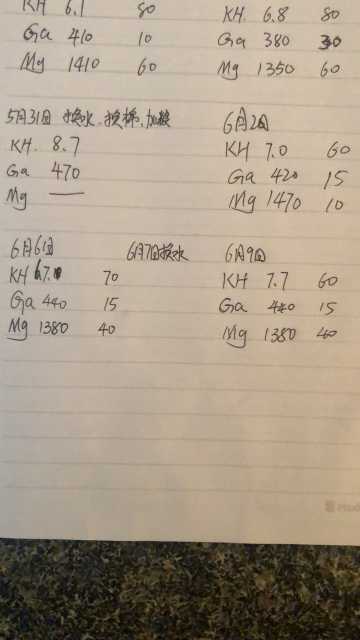 KH 6.1 80
Ga 410 10
Mg 1410 60
KH 6.8 80
Ga 380 30
Mg 1350 60
5月31日 换水、换棉、加
KH 8.7
Ga 470
Mg —
6月2日
KH 7.0 60
Ga 420 15
Mg 1470 10
6月6日
KH 7.0 70
Ga 440 15
Mg 1380 40
6月7日换水
6月9日
KH 7.7 60
Ga 440 15
Mg 1380 40